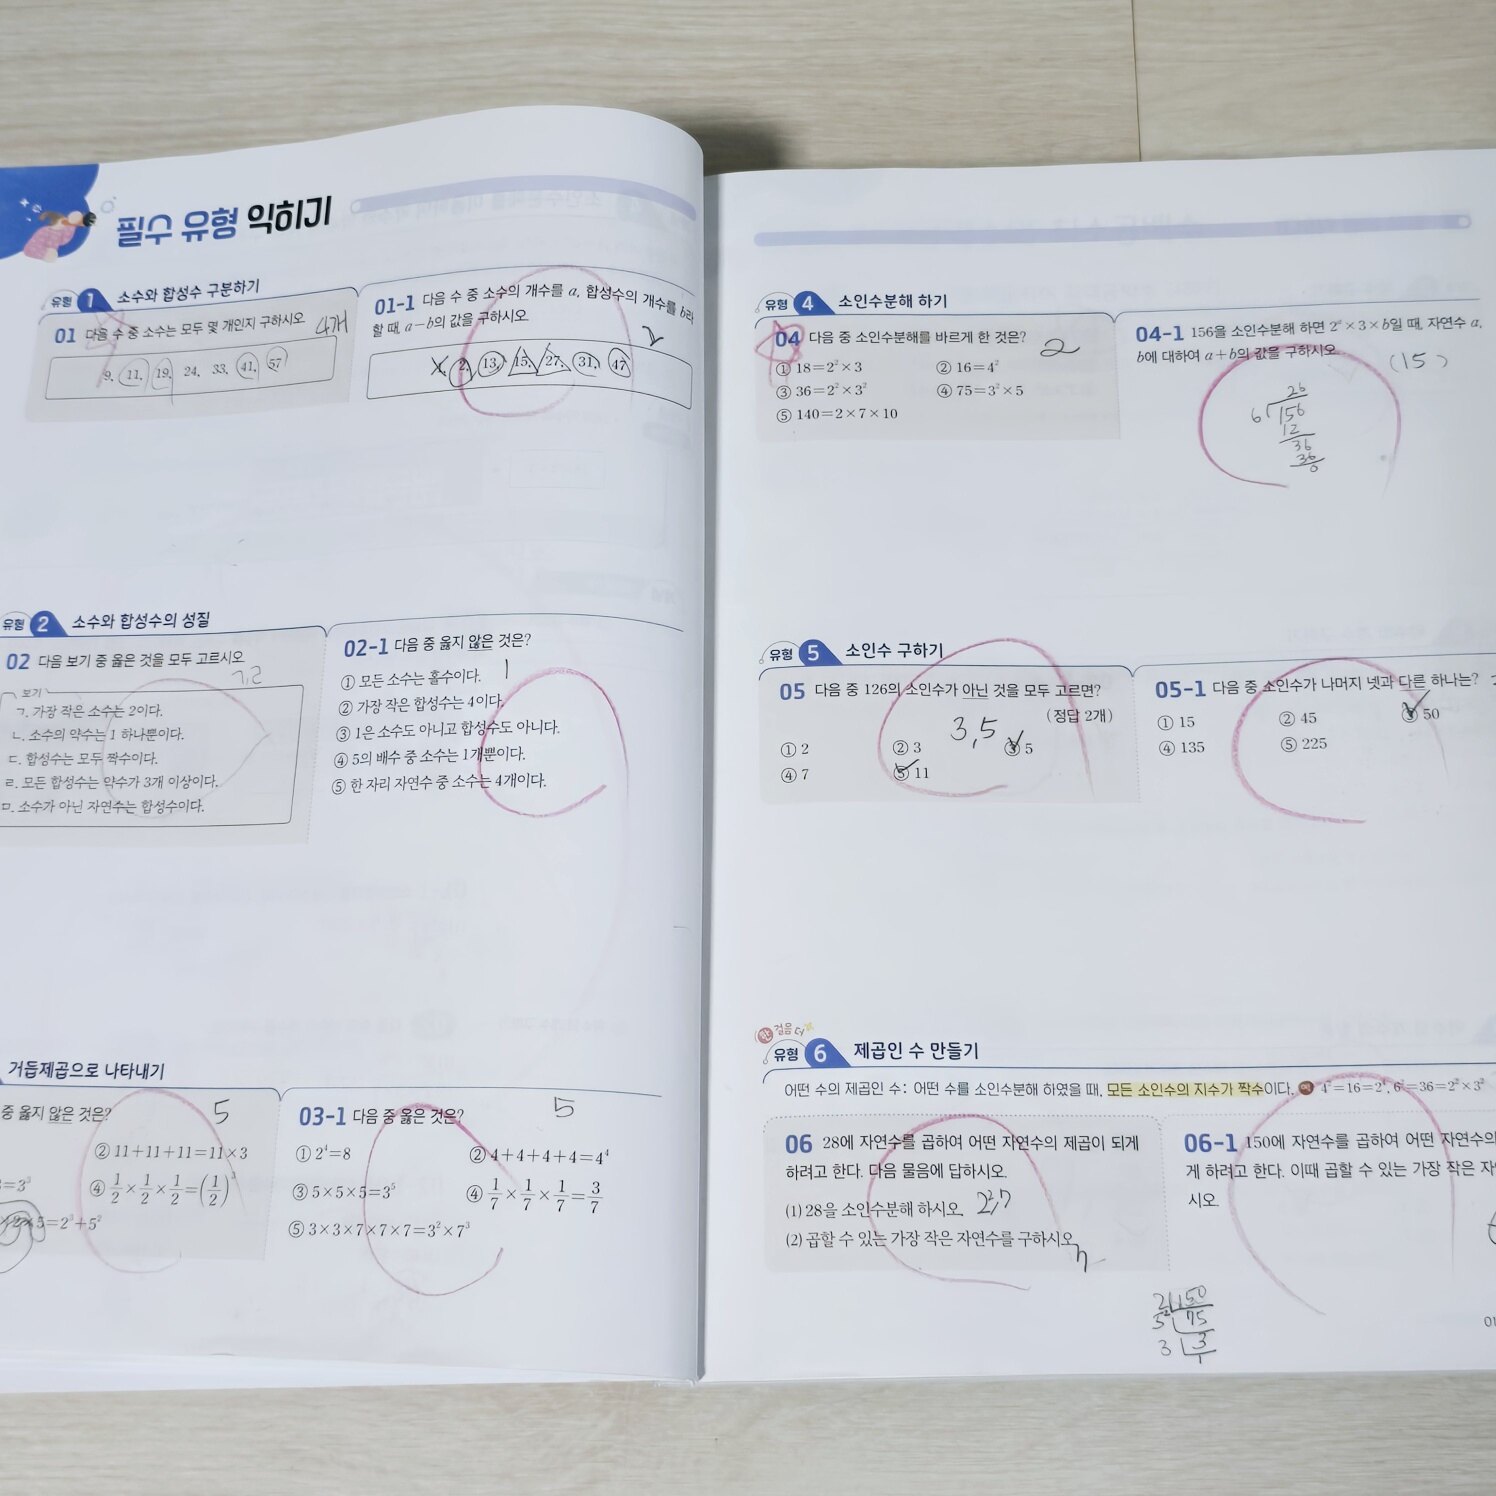 필수 유형 익히기
유형 1 소수와 합성수 구분하기
01 다음 수 중 소수는 모두 몇 개인지 구하시오. 4개
9, 11, 19, 24, 33, 41, 57
01-1 다음 수 중 소수의 개수를 a, 합성수의 개수를 b라
할 때, a-b의 값을 구하시오. 2
1, 2, 13, 15, 27, 31, 47
유형 2 소수와 합성수의 성질
02 다음 보기 중 옳은 것을 모두 고르시오.
ㄱ,ㄹ
보기
ㄱ. 가장 작은 소수는 2이다.
ㄴ. 소수의 약수는 1 하나뿐이다.
ㄷ. 합성수는 모두 짝수이다.
ㄹ. 모든 합성수는 약수가 3개 이상이다.
ㅁ. 소수가 아닌 자연수는 합성수이다.
02-1 다음 중 옳지 않은 것은?
① 모든 소수는 홀수이다. 1
② 가장 작은 합성수는 4이다.
③ 1은 소수도 아니고 합성수도 아니다.
④ 5의 배수 중 소수는 1개뿐이다.
⑤ 한 자리 자연수 중 소수는 4개이다.
거듭제곱으로 나타내기
중 옳지 않은 것은? 5
② 11+11+11=11×3
=3³
④ 1/2×1/2×1/2=(1/2)³
×2×5=2³+5²
03-1 다음 중 옳은 것은? 5
① 2⁴=8
② 4+4+4+4=4⁴
③ 5×5×5=3⁵
④ 1/7×1/7×1/7=3/7
⑤ 3×3×7×7×7=3²×7³
유형 4 소인수분해 하기
04 다음 중 소인수분해를 바르게 한 것은? 2
① 18=2²×3
② 16=4²
③ 36=2²×3²
④ 75=3²×5
⑤ 140=2×7×10
04-1 156을 소인수분해 하면 2²×3×b일 때, 자연수 a,
b에 대하여 a+b의 값을 구하시오.
(15)
26
6 156
12
36
36
0
유형 5 소인수 구하기
05 다음 중 126의 소인수가 아닌 것을 모두 고르면?
(정답 2개)
3,5
① 2
② 3
③ 5
④ 7
⑤ 11
05-1 다음 중 소인수가 나머지 넷과 다른 하나는?
① 15
② 45
③ 50
④ 135
⑤ 225
한 걸음 더
유형 6 제곱인 수 만들기
어떤 수의 제곱인 수: 어떤 수를 소인수분해 하였을 때, 모든 소인수의 지수가 짝수이다. 예 4²=16=2⁴, 6²=36=2²×3²
06 28에 자연수를 곱하여 어떤 자연수의 제곱이 되게
하려고 한다. 다음 물음에 답하시오.
(1) 28을 소인수분해 하시오. 2²,7
(2) 곱할 수 있는 가장 작은 자연수를 구하시오. 7
06-1 150에 자연수를 곱하여 어떤 자연수의
게 하려고 한다. 이때 곱할 수 있는 가장 작은
시오.
2 150
5² 75
3 3
1